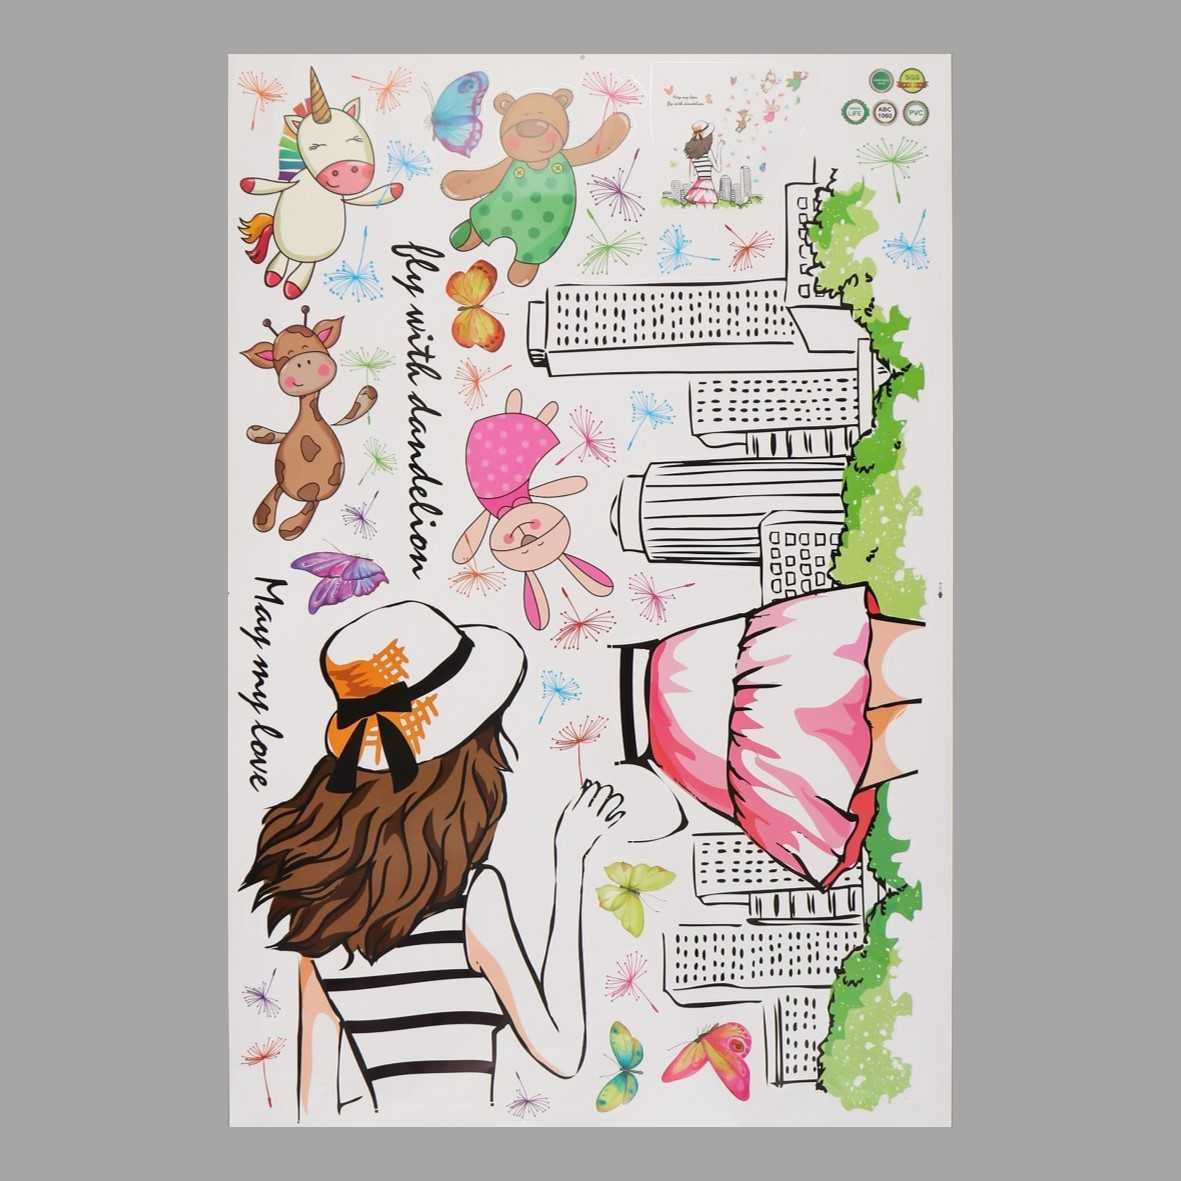 May my love
fly with dandelion
SGS
LIFE
ABC
1060
PVC